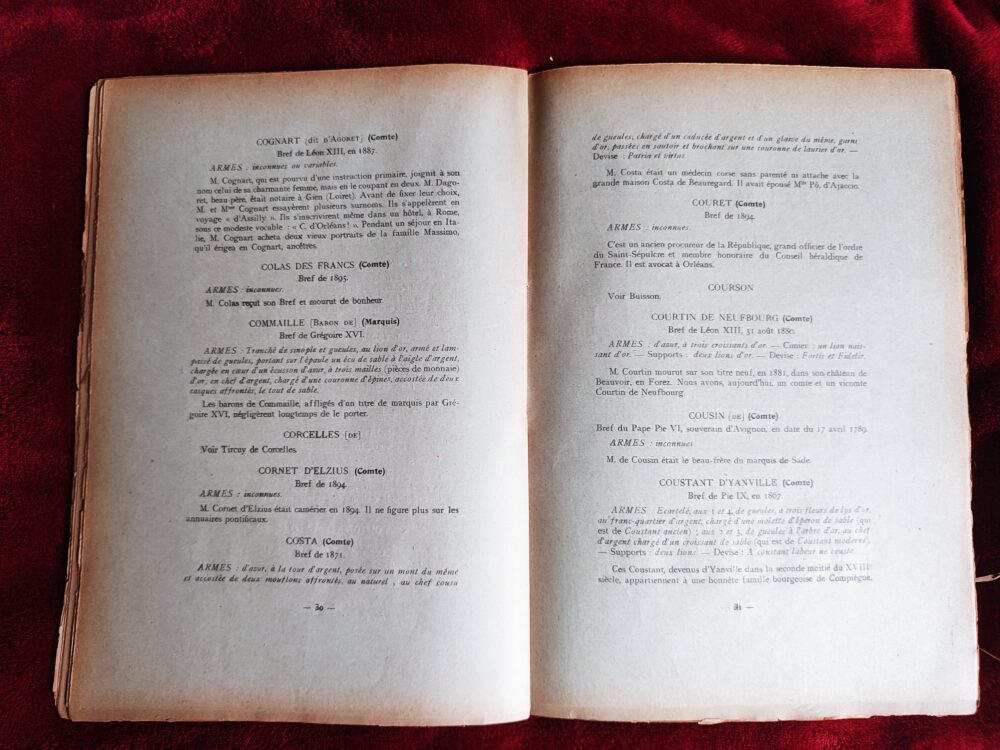 COGNART [dit d'Agoret] (Comte)
Bref de Léon XIII, en 1887.
ARMES : inconnues ou variables.
M. Cognart, qui est pourvu d'une instruction primaire, joignit à son
nom celui de sa charmante femme, mais en le coupant en deux. M. Dago-
ret, beau-père, était notaire à Gien (Loiret). Avant de fixer leur choix,
M. et Mme Cognart essayèrent plusieurs surnoms. Ils s'appelèrent en
voyage « d'Assilly ». Ils s'inscrivirent même dans un hôtel, à Rome,
sous ce modeste vocable : « C. d'Orléans ! ». Pendant un séjour en Ita-
lie, M. Cognart acheta deux vieux portraits de la famille Massimo,
qu'il érigea en Cognart, ancêtres.
COLAS DES FRANCS (Comte)
Bref de 1895.
ARMES : inconnues.
M. Colas reçut son Bref et mourut de bonheur.
COMMAILLE [Baron de] (Marquis)
Bref de Grégoire XVI.
ARMES : Tranché de sinople et gueules, au lion d'or, armé et lam-
passé de gueules, portant sur l'épaule un écu de sable à l'aigle d'argent,
chargée en cœur d'un écusson d'azur, à trois mailles (pièces de monnaie)
d'or, en chef d'argent, chargé d'une couronne d'épines, accostée de deux
casques affrontés, le tout de sable.
Les barons de Commaille, affligés d'un titre de marquis par Gré-
goire XVI, négligèrent longtemps de le porter.
CORCELLES [de]
Voir Tircuy de Corcelles.
CORNET D'ELZIUS (Comte)
Bref de 1894.
ARMES : inconnues.
M. Cornet d'Elzius était camérier en 1894. Il ne figure plus sur les
annuaires pontificaux.
COSTA (Comte)
Bref de 1871.
ARMES : d'azur, à la tour d'argent, posée sur un mont du même
et accostée de deux mouflons affrontés, au naturel ; au chef cousu
— 39 —
de gueules, chargé d'un caducée d'argent et d'un glaive du même, garni
d'or, passées en sautoir et brochant sur une couronne de laurier d'or. —
Devise : Patria et virtus.
M. Costa était un médecin corse sans parenté ni attache avec la
grande maison Costa de Beauregard. Il avait épousé Mlle Pô, d'Ajaccio.
COURET (Comte)
Bref de 1894.
ARMES : inconnues.
C'est un ancien procureur de la République, grand officier de l'ordre
du Saint-Sépulcre et membre honoraire du Conseil héraldique de
France. Il est avocat à Orléans.
COURSON
Voir Buisson.
COURTIN DE NEUFBOURG (Comte)
Bref de Léon XIII, 31 août 1880.
ARMES : d'azur, à trois croissants d'or. — Cimier : un lion nais-
sant d'or. — Supports : deux lions d'or. — Devise : Fortis et Fidelis.
M. Courtin mourut sur son titre neuf, en 1881, dans son château de
Beauvoir, en Forez. Nous avons, aujourd'hui, un comte et un vicomte
Courtin de Neufbourg.
COUSIN [de] (Comte)
Bref du Pape Pie VI, souverain d'Avignon, en date du 17 avril 1789.
ARMES : inconnues
M. de Cousin était le beau-frère du marquis de Sade.
COUSTANT D'YANVILLE (Comte)
Bref de Pie IX, en 1867.
ARMES : Ecartelé, aux 1 et 4, de gueules, à trois fleurs de lys d'or,
au franc-quartier d'argent, chargé d'une molette d'éperon de sable (qui
est de Coustant ancien) ; aux 2 et 3, de gueules à l'arbre d'or, au chef
d'argent chargé d'un croissant de sable (qui est de Coustant moderne).
— Supports : deux lions — Devise : A constant labeur ne couste.
Ces Coustant, devenus d'Yanville dans la seconde moitié du XVIIIe
siècle, appartiennent à une honnête famille bourgeoise de Compiègne.